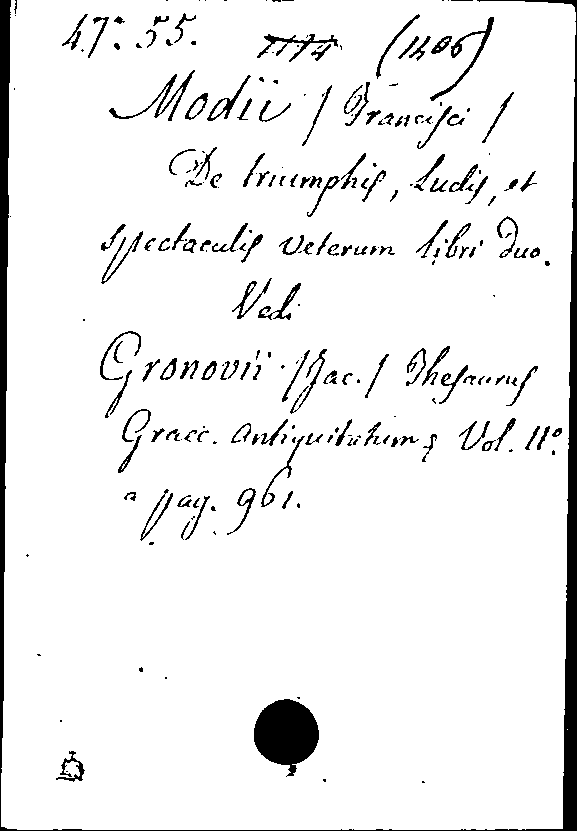 47: 55. 1174 (1406)
Modii / Francisci /
De triumphis, Ludis, et
spectaculis veterum libri duo.
Vedi
Gronovii /Jac./ Thesaurus
Graec. Antiquitatum Vol. 11º.
a pag. 961.